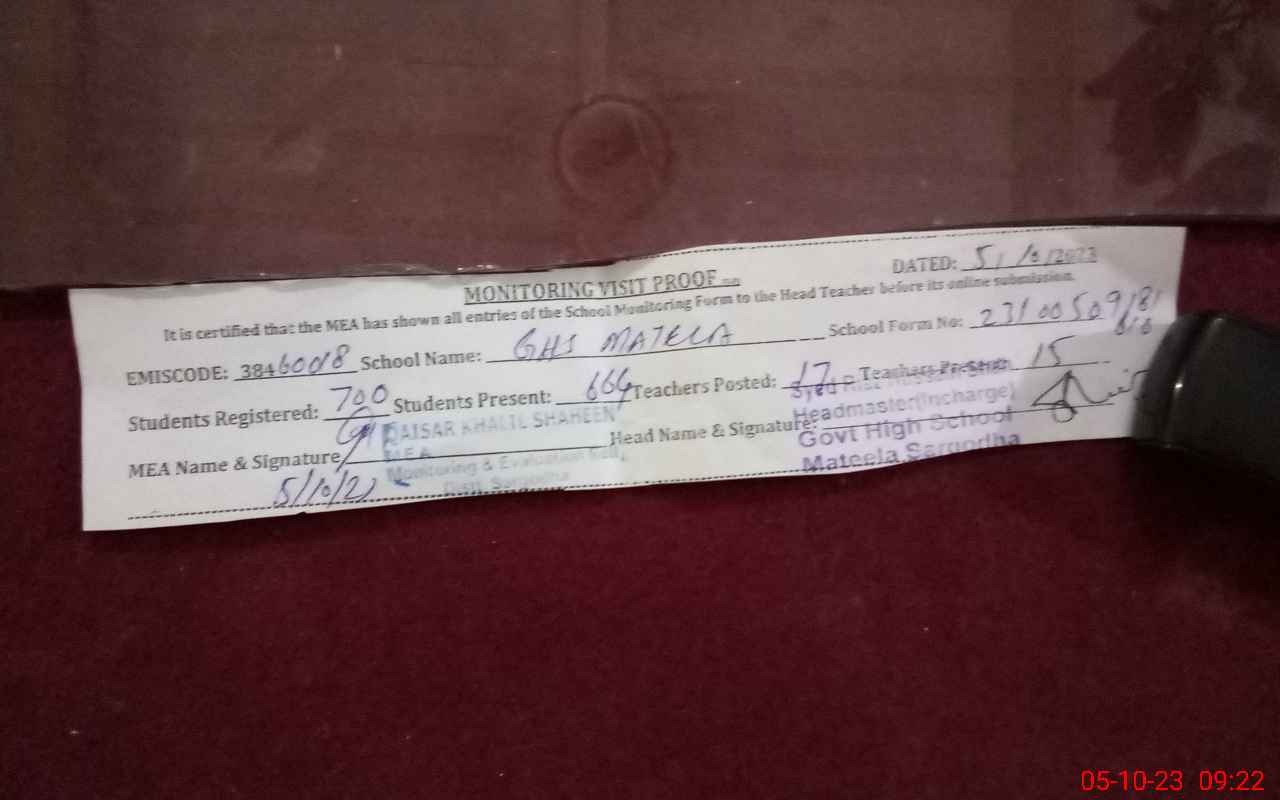 MONITORING VISIT PROOF
DATED: 5/10/2023
It is certified that the MEA has shown all entries of the School Monitoring Form to the Head Teacher before its online submission.
EMISCODE: 38460018 School Name: GHS MATELA School Form No: 2310050918
Students Registered: 700 Students Present: 664 Teachers Posted: 17 Teachers Present: 15
QAISAR KHALIL SHAHEEN
MEA
Monitoring & Evaluation
Distt. Sargodha
MEA Name & Signature
5/10/23
Head Name & Signature:
Syed
Headmaster(Incharge)
Govt High School
Mateela Sargodha
05-10-23 09:22